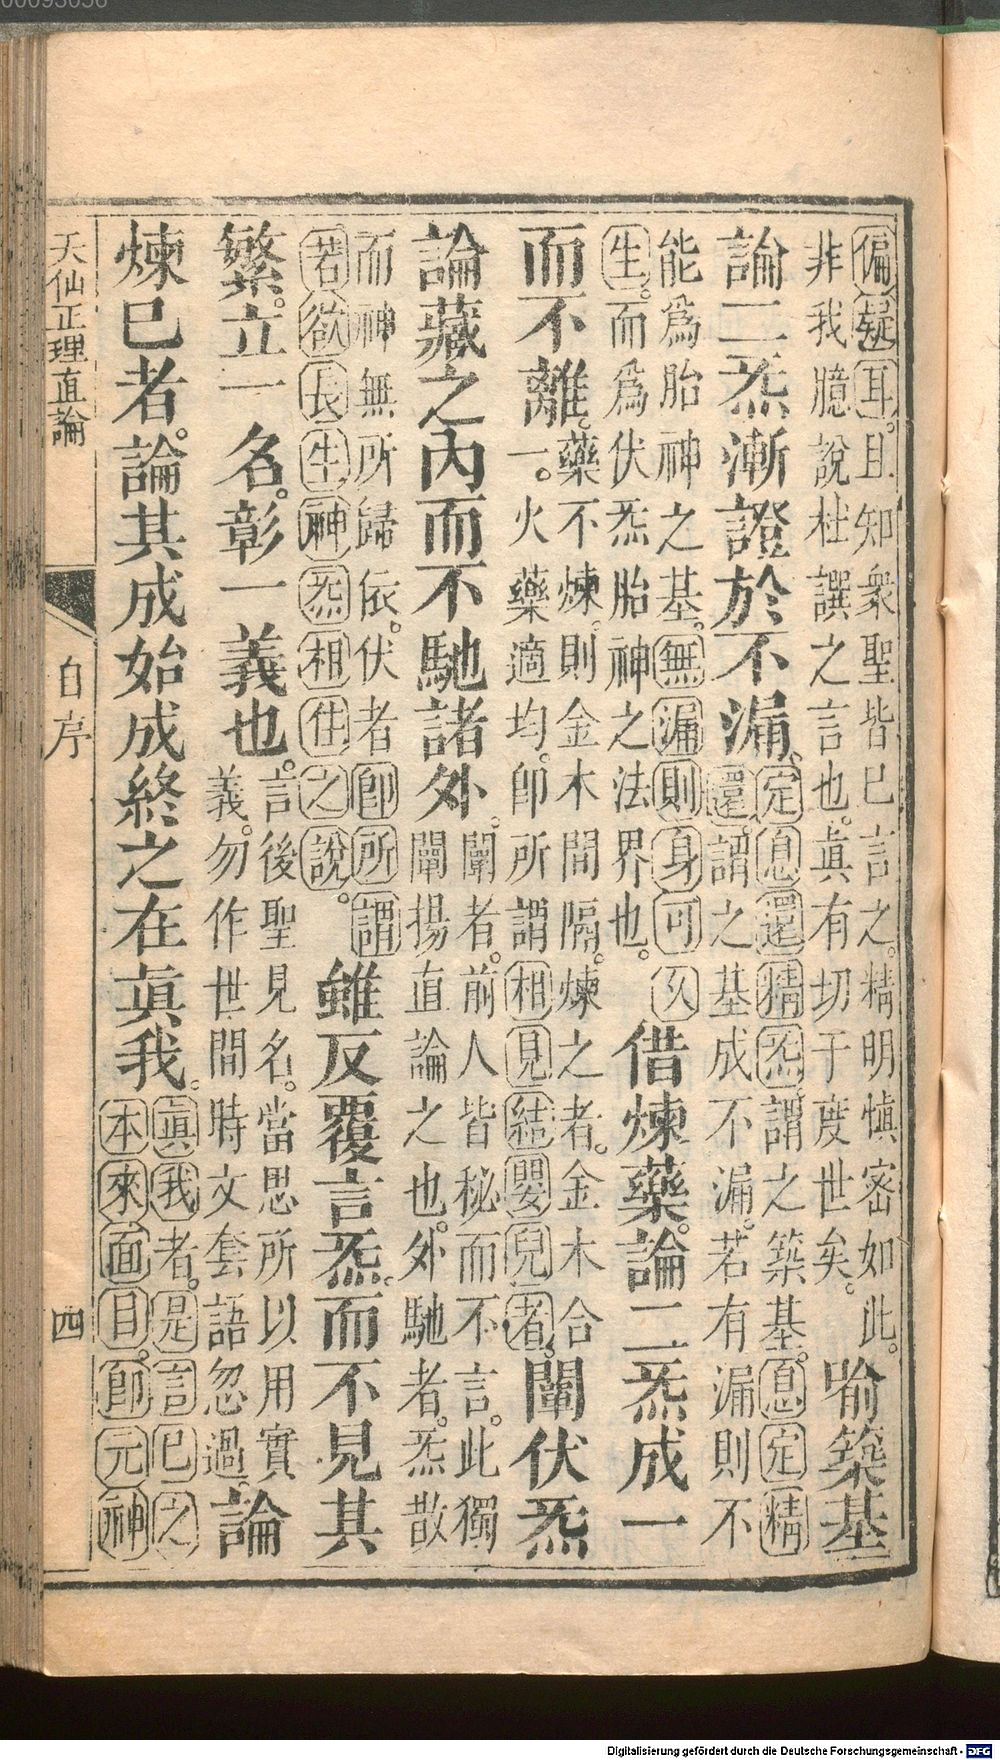 偏疑耳。且知衆聖皆巳言之。精明愼密如此。
非我臆說杜譔之言也。眞有切于度世矣。
喻築基
論二炁漸證於不漏。
定息還精炁謂之築基。息定精
還。謂之基成不漏。若有漏則不
能爲胎神之基。無漏則身可久
生。而爲伏炁胎神之法界也。
借煉藥。論二炁成一
而不離。
藥不煉。則金木間隔。煉之者。金木合
一。火藥適均。卽所謂相見結嬰兒者。
闡伏炁
論藏之內而不馳諸外。
闡者。前人皆秘而不言。此獨
闡揚直論之也。外馳者。炁散
而神無所歸依。伏者卽所謂
若欲長生神炁相住之說。
雖反覆言炁。而不見其
繁立一名。彰一義也。
言後聖見名。當思所以用實
義。勿作世間時文套語忽過。
論
煉巳者。論其成始成終之在眞我。
眞我者。是言巳之
本來面目。卽元神
天仙正理直論
自序
四
Digitalisierung gefördert durch die Deutsche Forschungsgemeinschaft - DFG